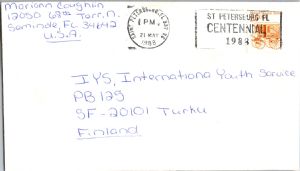 Mariann Coughlin
12050 68th Terr. N.
Seminole, FL 34642
U.S.A.
1 PM
21 MAY
1988
ST PETERSBURG FL
CENTENNIAL
1988
IYS, International Youth Service
PB 125
SF-20101 Turku
Finland